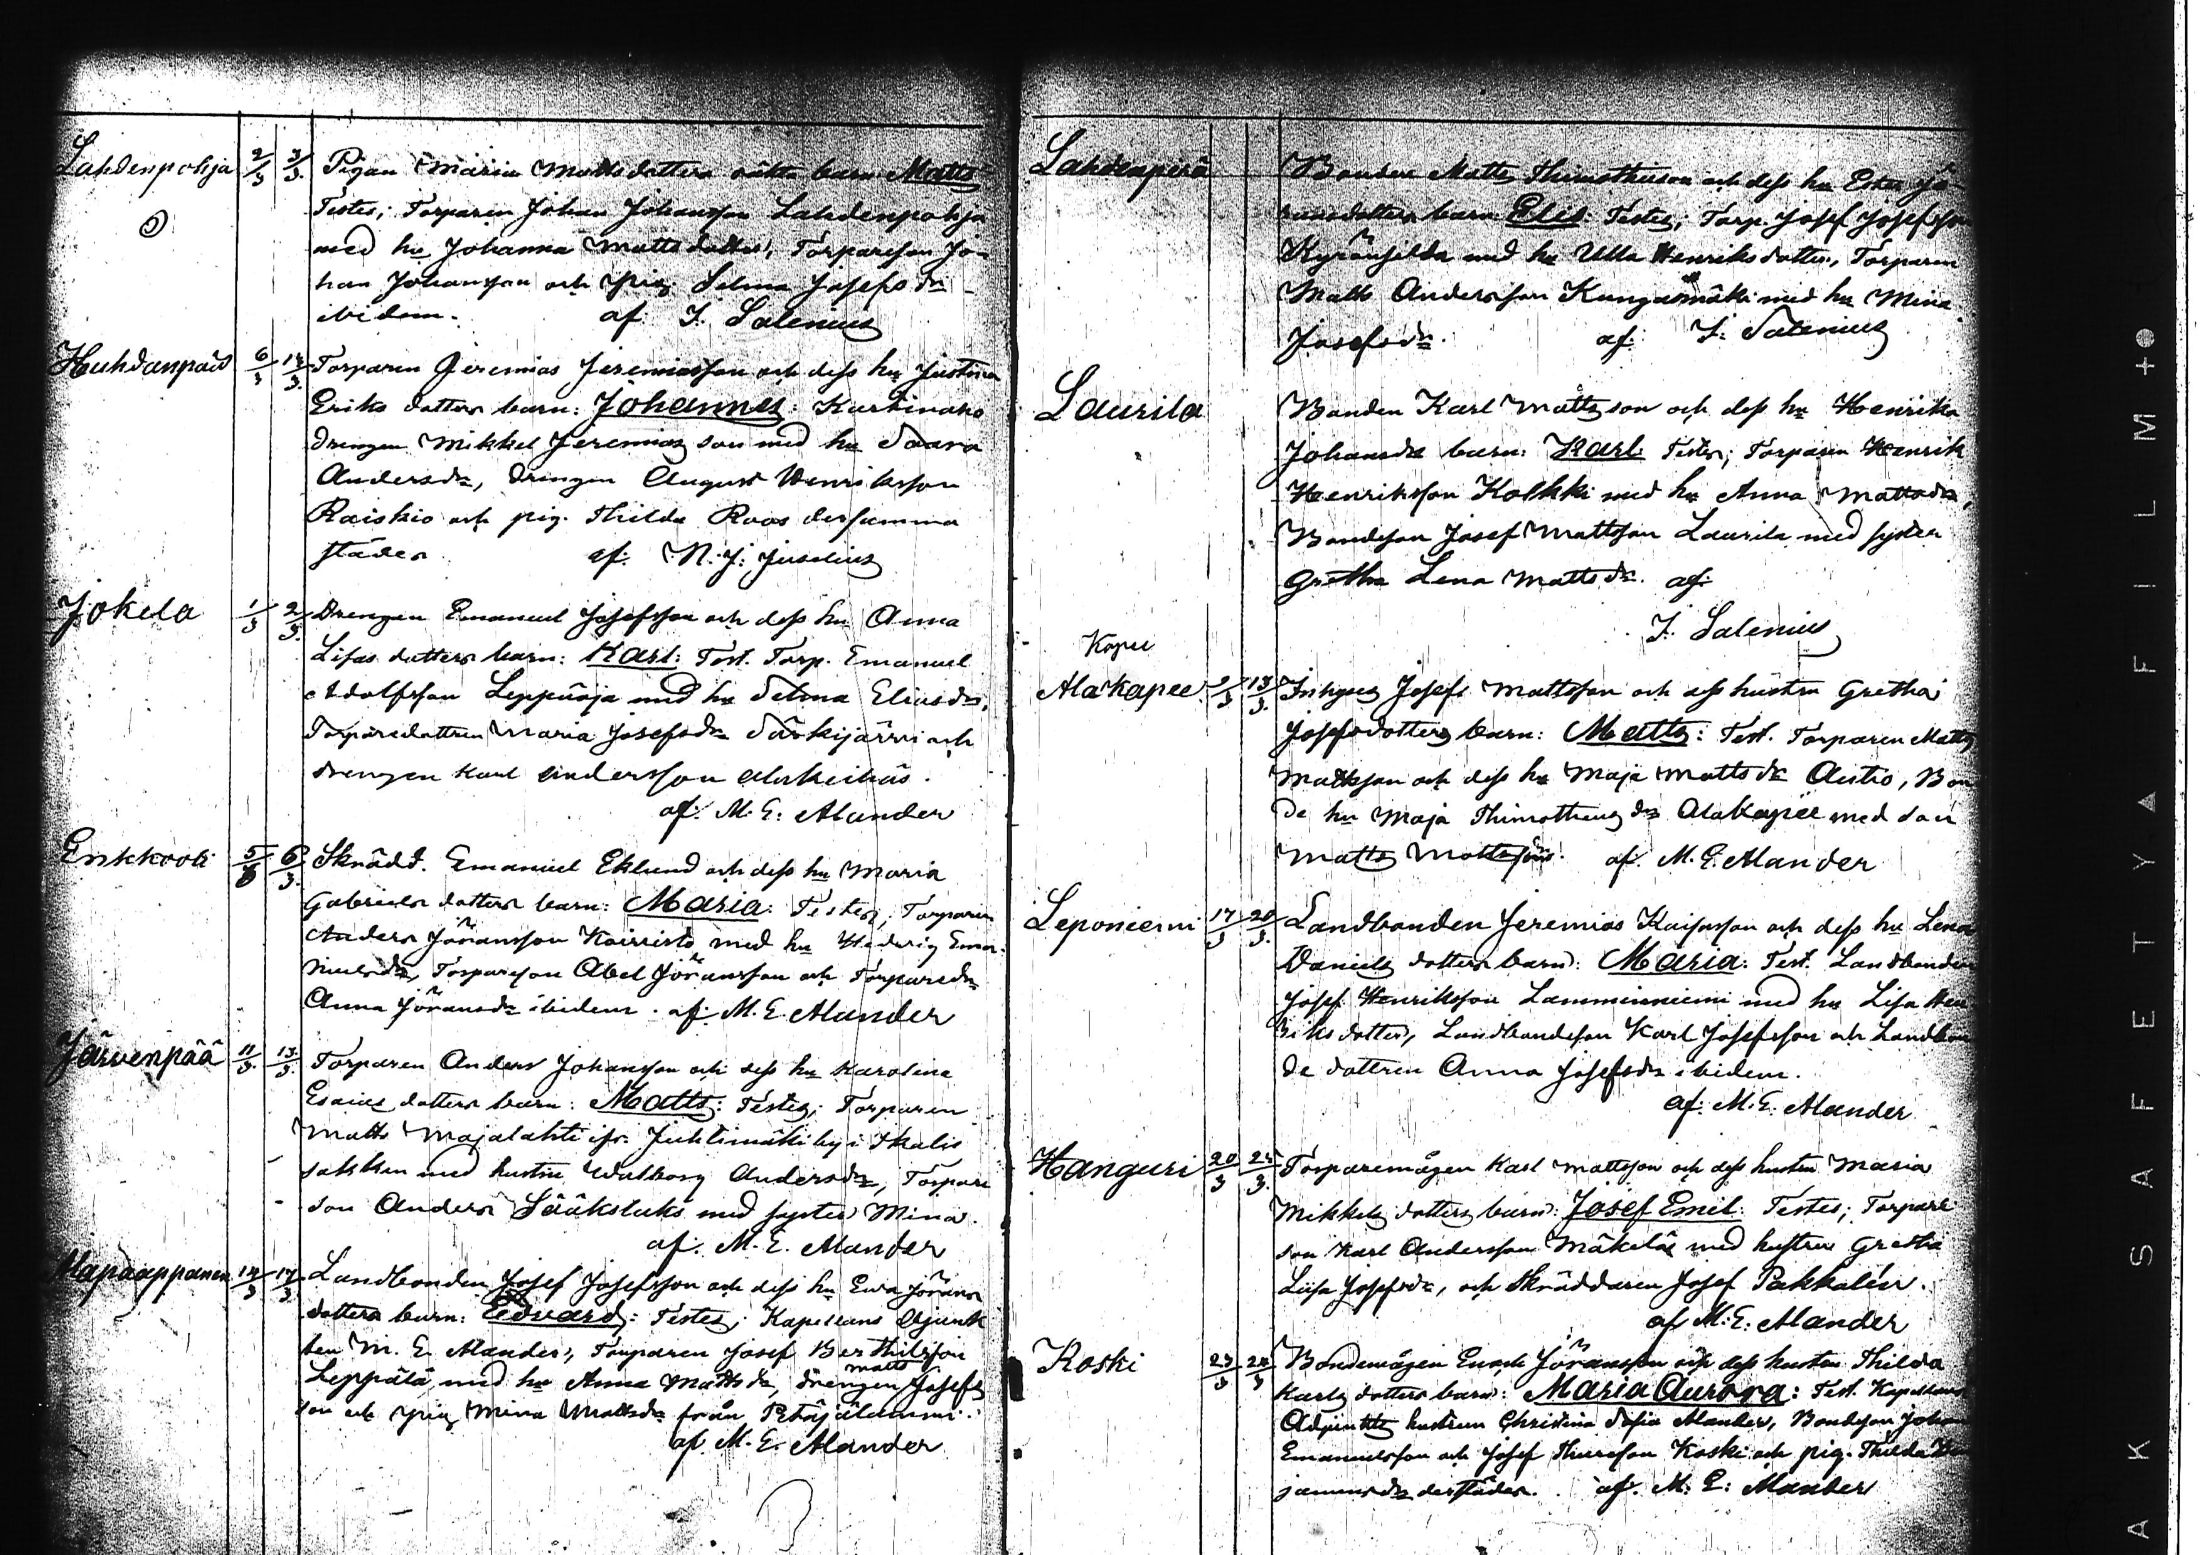 Lahdenpohja 2/3 3/3. Pigan Maria Mattsdotters oäkta barn Matts
Testes; Torparen Johan Johansson Lahdenpohja
med hu Johanna Mattsdotter, Torpareson Jo-
han Johansson och pig. Selma Josefsdr
ibidem. af. J. Salenius
Huhdanpää 6/3 Torparen Jeremias Jeremiasson och dess hu Justina
Eriks dotters barn: Johannes:
drengen Mikkel Jeremias son med hu Saara
Andersdr, drengen August Henriksson
Raiskio och pig. Thilda Roos dersamma
städes af. N. J. Juselius
Jokela 1/3 2/3. Drengen Emanuel Josefsson och dess hu Anna
Lisas dotters barn: Karl: Test. Torp. Emanuel
Adolfsson Leppäoja med hu Selma Eliasdr,
Torparedottren Maria Josefsdr Särkijärvi och
drengen Karl Andersson
af. M. E. Alander
5/3 6/3. Skrädd. Emanuel Eklund och dess hu Maria
Gabriels dotters barn: Maria: Testes; Torparen
Anders Jöransson Koivisto med hu Hedvig Ema-
nuelsdr, Torpareson Abel Jöransson och Torparedr
Anna Jöransdr ibidem. af. M. E. Alander
Järvenpää 11/3. 13/3. Torparen Anders Johansson och dess hu Karolina
Esaias dotters barn: Matts: Testes; Torparen
Matts Majalahti ifr. Juhtimäki by i Skalis
sakken med hustru Walborg Andersdr, Torpare
son Anders Sääksluks med syster Mina.
af. M. E. Alander
14/3 17/3 Landbonden Josef Josefsson och dess hu Eva Jörans
dotters barn: Edvard: Testes; Kapellans Adjunk
ten M. E. Alander, Torparen Josef Berthilsson
Leppälä med hu Anna Mattsdr, drengen Matts Josefs
son och pig. Mina Mattsdr från Petäjälammi.
af. M. E. Alander
Lahdenperä Bonden Matts Thimotheuson och dess hu Ester Jö-
ransdotters barn Elis: Testes; Torp. Josef Josefsson
med hu Ulla Henriksdotter, Torparen
Matts Andersson Kangasmäki med hu Mina
Josefsdr. af. J. Salenius
Laurila Bonden Karl Mattsson och dess hu Henrika
Johansdr barn: Karl: Testes; Torparen Henrik
Henriksson Kolkki med hu Anna Mattsdr,
Bondeson Josef Mattsson Laurila med syster
Gretha Lena Mattsdr. af.
J. Salenius
Kapee
Alakapee 13/3. Inhyses Josef Mattsson och dess hustru Gretha
Josefsdotters barn: Matts: Test. Torparen Matts
Mattsson och dess hu Maja Mattsdr Autio, Bon
de hu Maja Thimotheus dr Alakapee med son
Matts Mattsson. af. M. E. Alander
Leponiemi 17/3 20/3. Landbonden Jeremias Kaisasson och dess hu Lena
Daniels dotters barn: Maria: Test. Landbonden
Josef Henriksson Lamminniemi med hu Lisa Hen
riksdotter, Landbondeson Karl Josefsson och Landbon
de dottren Anna Josefsdr ibidem.
af. M. E. Alander
Hanguri 20/3 Torparemågen Karl Mattsson och dess hustru Maria
Mikkels dotters barn: Josef Emil: Testes; Torpare
son Karl Andersson Mäkelä med hustru Gretha
Lisa Josefsdr, och Skräddaren Josef Pakkalén.
af M. E. Alander
Koski 23/3 Bondemågen Enoch Jöransson och dess hustru Thilda
Karls dotters barn: Maria Aurora: Test. Kapellans
Adjunkts hustrun Christina Sofia Alander, Bondeson Johan
Emanuelsson och Josef Koski och pig. Thilda Ben
jaminsdr derstädes. af. M. E. Alander
AK SAFETY AFILM